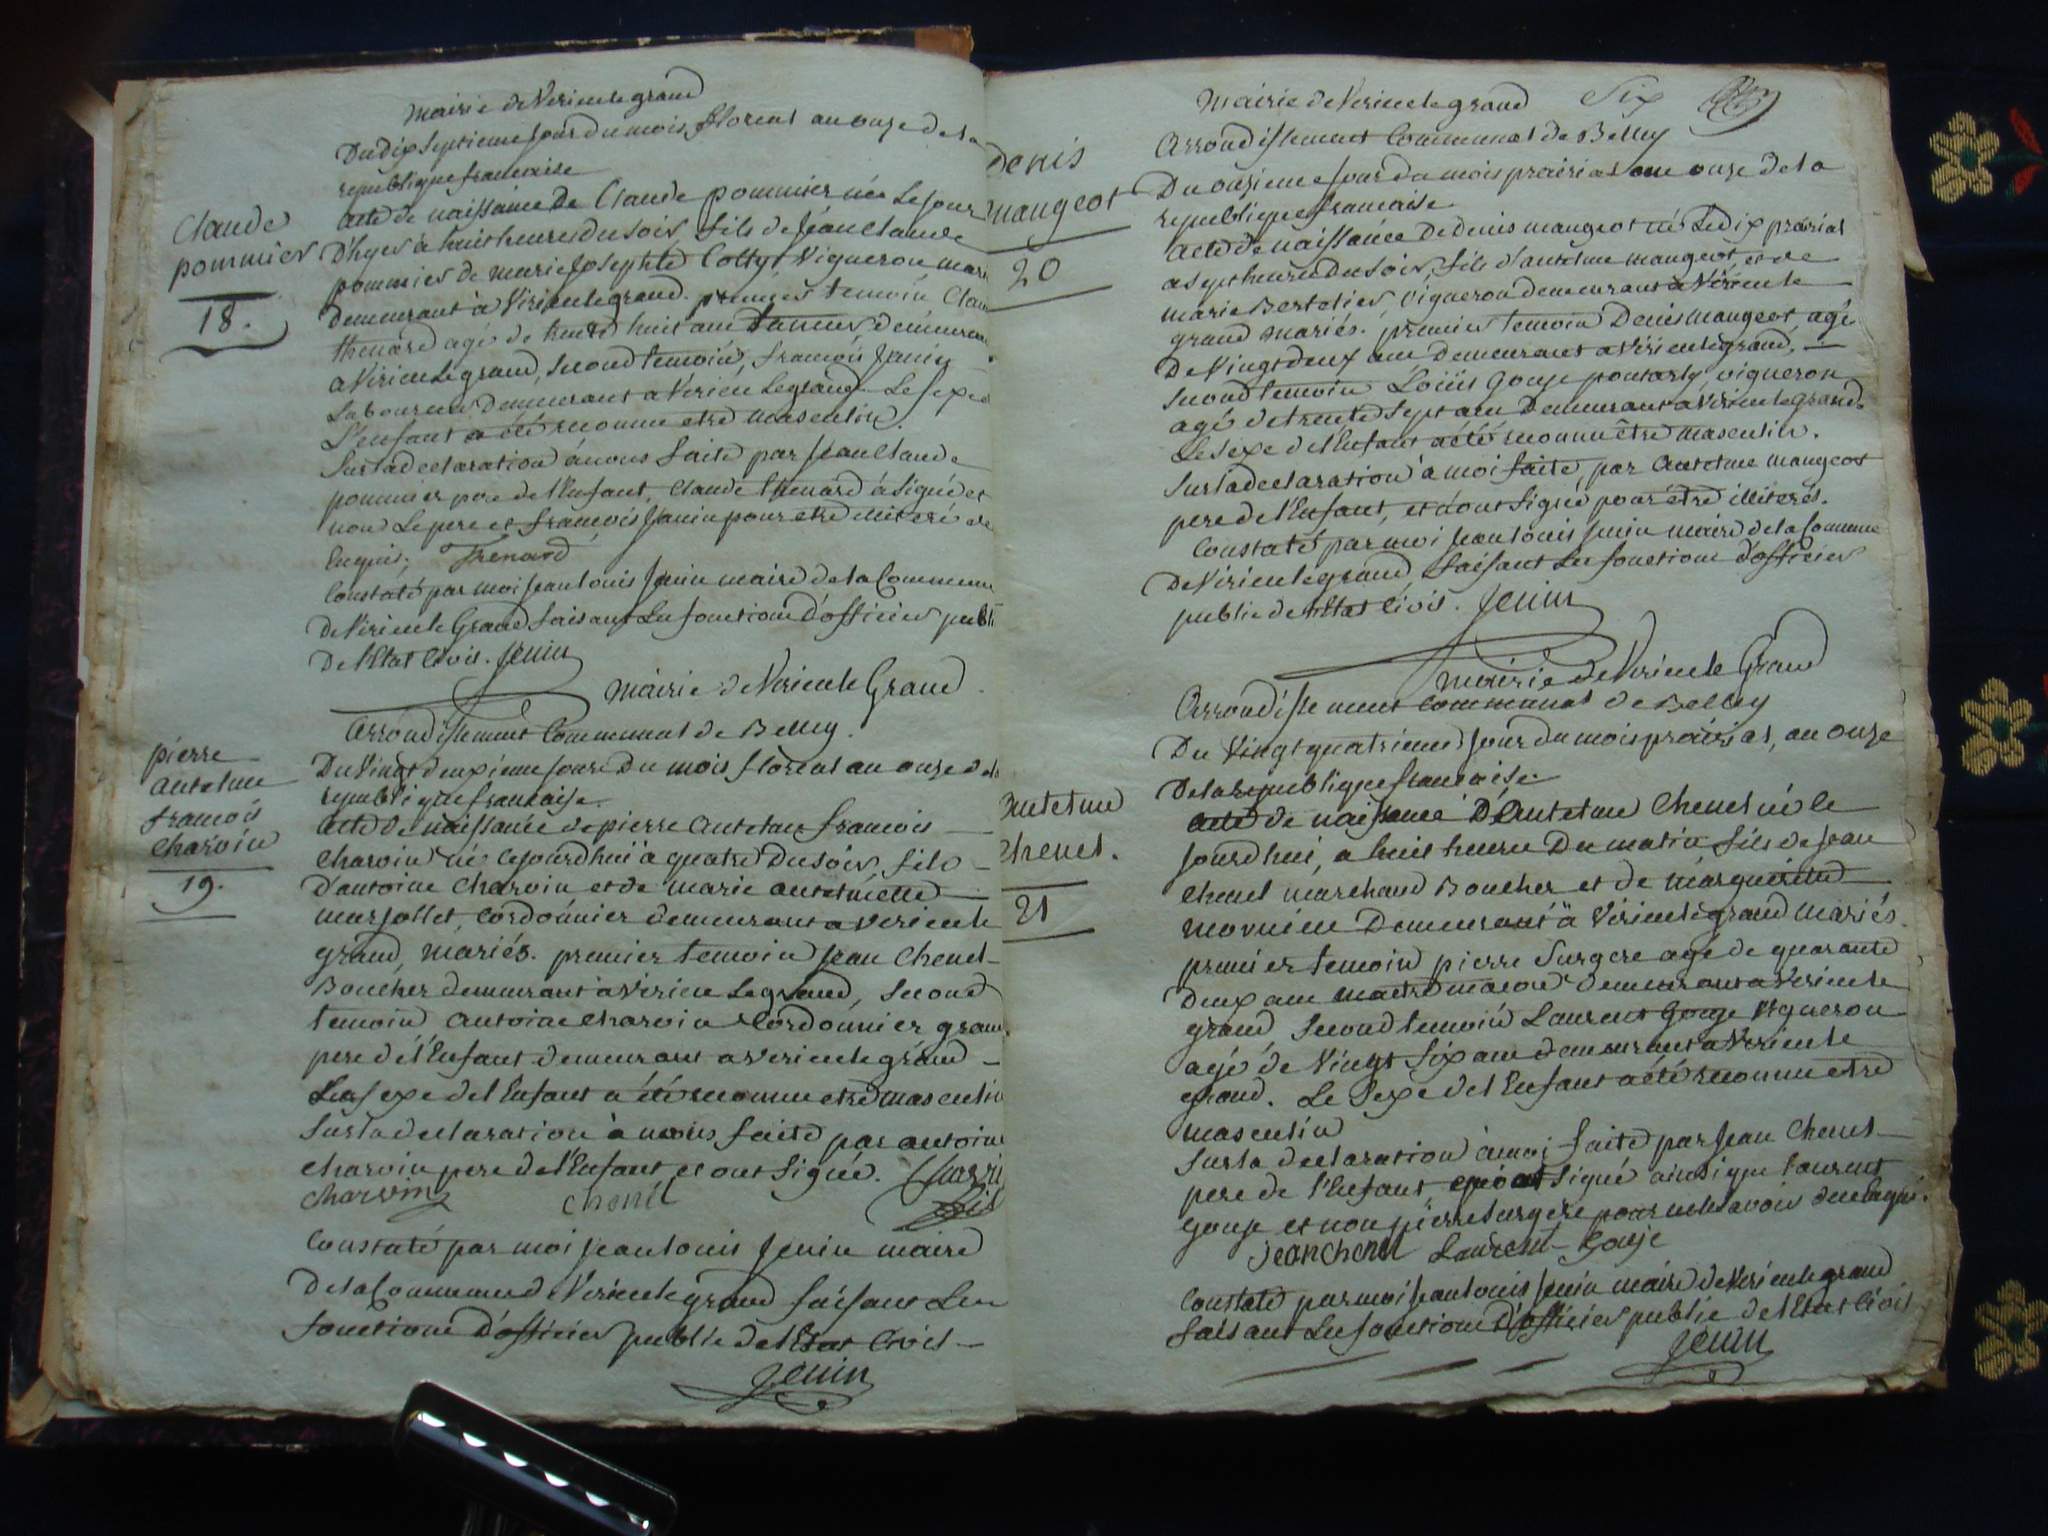 Mairie de Virieu le grand
Du dix Septieme Jour du mois floreal an onze de la
republique francaise
Claude
pommier
18.
acte de naissance de Claude pommier né Le jour
D'hyer à huit heures du soir, fils de Jean Claude
pommier de marie Josephte Collyt Vigneron, mari
Demeurant à Virieu le grand. premier temoin Clau
thenard agé de trente huit ans demeuran
a Virieu Le grand, Second temoin, francois Janin
Laboureur Demeurant a Virieu Le grand Le Sexe
L'enfant a été reconnu etre masculin.
Sur la declaration à nous faite par Jean Claude
pommier pere de l'Enfant, Claude thenard à Signé et
non Le pere et francois Janin pour etre illiteré de
Enquis; Thenard
Constaté par moi Jean Louis Jenin maire de la Commune
De Virieu le Grand faisant Les fonctions D'officier publi
De l'Etat Civil. Jenin
Mairie de Virieu le Grand
arrondissement Communal de Belley.
pierre
antelme
francois
Charvin
19.
Du Vingt deuxieme Jour Du mois floreal an onze de la
republique francaise.
acte De naissance de pierre antelme francois
Charvin né cejourdhui à quatre Du soir, fils
D'antoine Charvin et de marie antelmette
marjollet, Cordonnier demeurant a Virieu le
grand, mariés. premier temoin Jean Chenel
Boucher demeurant a Virieu Le grand, Second
temoin antoine Charvin Cordonnier gran
pere de l'Enfant demeurant a Virieu le grand
Le sexe de l'Enfant a été reconnu etre masculin
Sur la declaration à nous faite par antoine
Charvin pere de l'Enfant et ont Signé. Charvi
Charvin chenel fils
Constaté par moi Jean Louis Jenin maire
De la Commune de Virieu le grand faisant Les
fonctions D'officier public de l'Etat Civil
Jenin
Mairie de Virieu le grand Six
Arrondissement Communal de Belley
Denis
mangeot
20
Du onzieme Jour du mois prairial an onze de la
republique francaise
Acte de naissance De denis mangeot né Le dix prairial
a sept heures Du Soir, fils d'antelme mangeot et de
marie Bertelier, Vigneron demeurant a Virieu le
grand mariés. premier temoin Denis mangeot agé
De Vingt deux ans Demeurant a Virieu le grand,
Second temoin Loüis Gouje pontarly, vigneron
agé de trente Sept ans Demeurant a Virieu le grand.
Le Sexe de l'Enfant a été reconnu être masculin.
Sur la declaration à moi faite, par Antelme mangeot
pere de l'Enfant, et n'ont Signé pour être illiterés.
Constaté par moi Jean Louis Jenin maire de la Commune
De Virieu le grand, faisant Les fonctions D'officier
public de l'Etat Civil. Jenin
Mairie de Virieu le Grand
Arrondissement Communal de Belley
Du Vingt quatrieme Jour du mois prairial, an onze
De la republique francaise.
antelme
Chenel.
21
acte de naissance D'Antelme Chenel né le
Jourdhui, a huit heures Du matin fils de Jean
Chenel marchand Boucher et de marguerite
Demeurant à Virieu le grand Mariés.
premier temoin pierre Surgere agé de quarante
Deux ans maitre macon demeurant a Virieu le
grand, Second temoin Laurent Gouge Vigneron
agé de Vingt Six ans demeurant a Virieu le
grand. Le Sexe de l'Enfant a été reconnu etre
masculin
Sur la declaration à moi faite par Jean Chenel
pere de l'Enfant, qui a Signé ainsi que Laurent
Gouje et non pierre Surgere pour ne le savoir de ce Enquis.
Jean chenel Laurent Gouje
Constaté par moi Jean Louis Jenin maire de Virieu le grand
faisant Les fonctions D'officier public de l'Etat Civil
Jenin